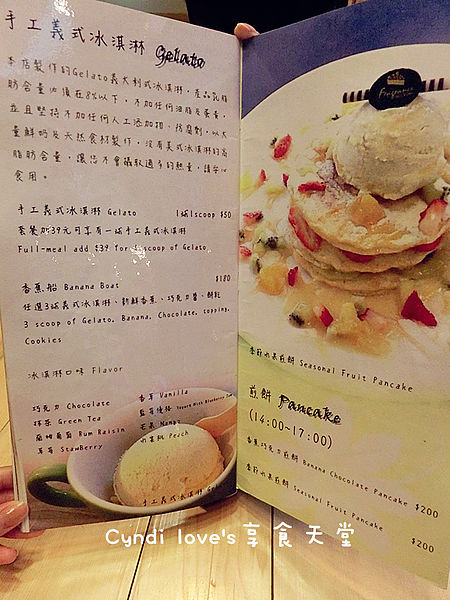 手工義式冰淇淋 Gelato
本店製作的Gelato義大利式冰淇淋,產品乳脂
肪含量必須在8%以下,不加任何油脂及蛋黃,
並且堅持不加任何人工添加物、防腐劑,以大
量鮮奶及天然食材製作,沒有美式冰淇淋的高
脂肪含量,讓您不會攝取過多的熱量,請安心
食用。
手工義式冰淇淋 Gelato 1球1scoop $50
套餐加39元可享有一球手工義式冰淇淋
Full-meal add $39 for 1 scoop of Gelato
香蕉船 Banana Boat $180
任選3球義式冰淇淋、新鮮香蕉、巧克力醬、餅乾
3 scoop of Gelato, Banana, Chocolate, topping,
Cookies
冰淇淋口味 Flavor
巧克力 Chocolate
抹茶 Green Tea
蘭姆葡萄 Rum Raisin
草莓 StawBerry
香草 Vanilla
藍莓優格 Yogurt With Blueberry
芒果 Mango
水蜜桃 Peach
手工義式冰淇淋
季節水果煎餅 Seasonal Fruit Pancake
煎餅 Pancake
(14:00~17:00)
香蕉巧克力煎餅 Banana Chocolate Pancake $200
季節水果煎餅 Seasonal Fruit Pancake
$200
Cyndi love's享食天堂